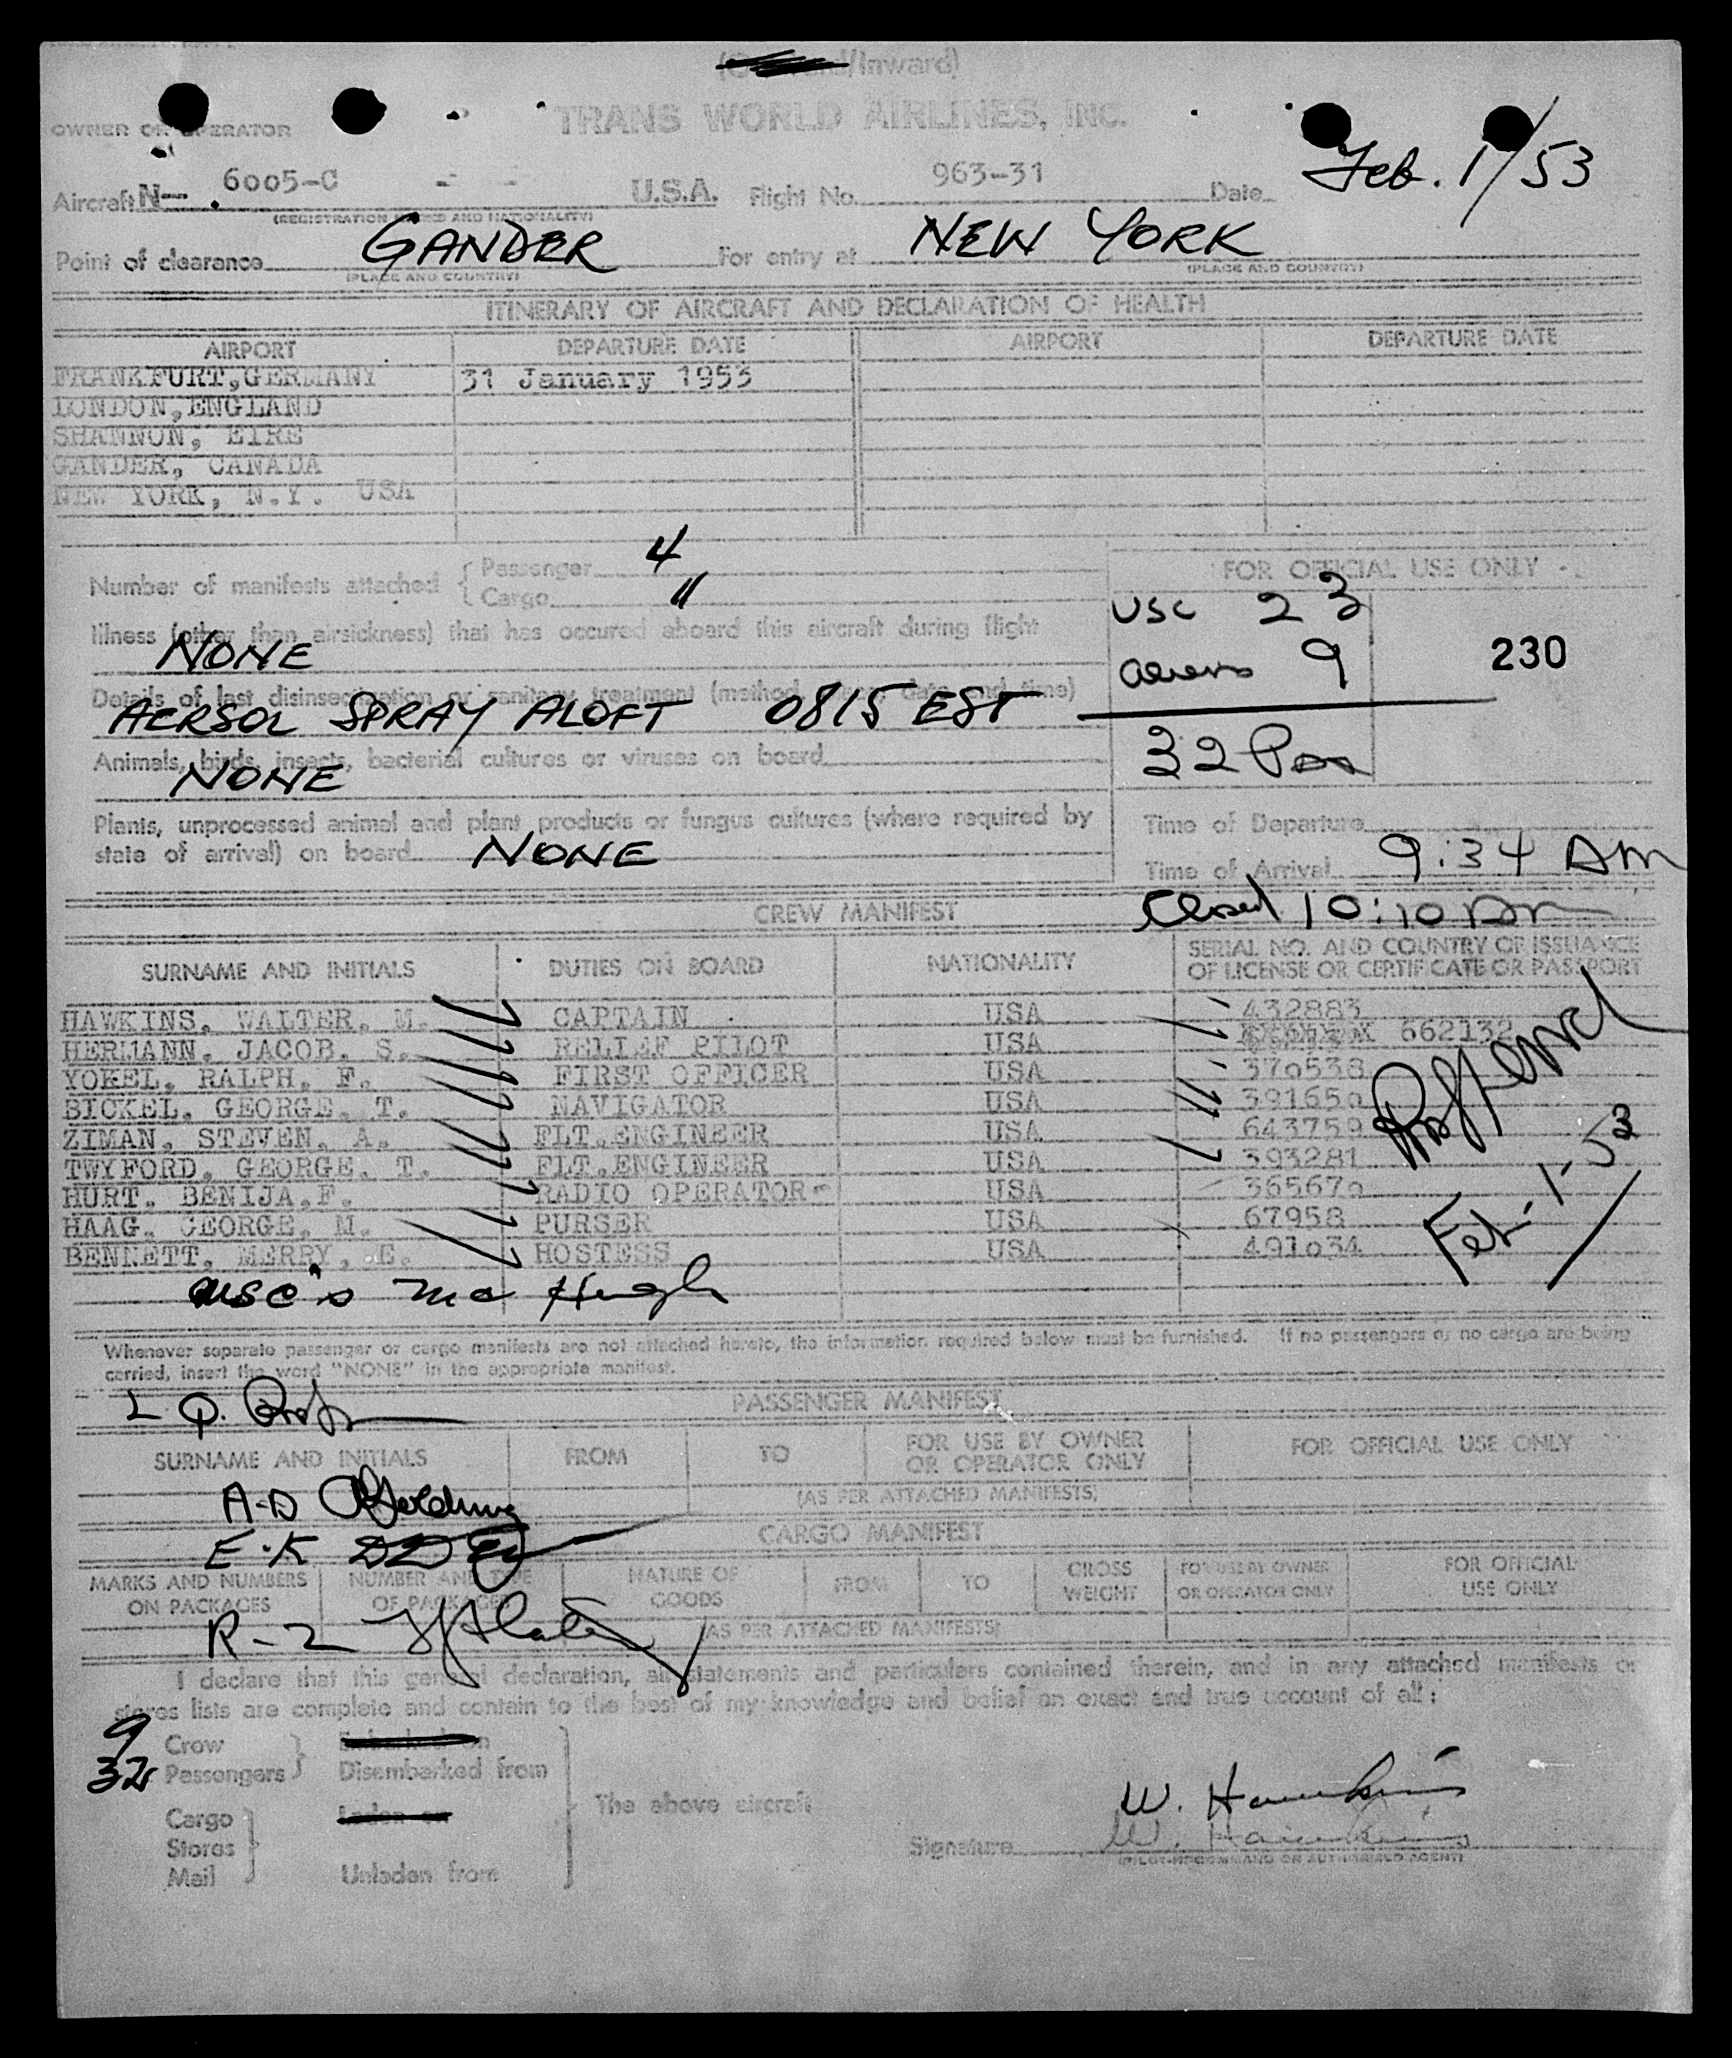 /Inward)
TRANS WORLD AIRLINES, INC.
OWNER OR OPERATOR
Aircraft N— 6005-C U.S.A. Flight No. 963-31 Date Feb. 1/53
(REGISTRATION MARKS AND NATIONALITY)
Point of clearance GANDER For entry at NEW YORK
(PLACE AND COUNTRY) (PLACE AND COUNTRY)
ITINERARY OF AIRCRAFT AND DECLARATION OF HEALTH
AIRPORT DEPARTURE DATE AIRPORT DEPARTURE DATE
FRANKFURT, GERMANY 31 January 1953
LONDON, ENGLAND
SHANNON, EIRE
GANDER, CANADA
NEW YORK, N.Y. USA
Number of manifests attached { Passenger 4
Cargo 11
FOR OFFICIAL USE ONLY
USC 23
Aliens 9
230
32 Pas
Illness (other than airsickness) that has occured aboard this aircraft during flight
NONE
Details of last disinsectization or sanitary treatment (method, place, date and time)
AERSOL SPRAY ALOFT 0815 EST
Animals, birds, insects, bacterial cultures or viruses on board
NONE
Plants, unprocessed animal and plant products or fungus cultures (where required by
state of arrival) on board NONE
Time of Departure
Time of Arrival 9:34 AM
Closed 10:10 AM
CREW MANIFEST
SURNAME AND INITIALS DUTIES ON BOARD NATIONALITY SERIAL NO. AND COUNTRY OF ISSUANCE OF LICENSE OR CERTIFICATE OR PASSPORT
HAWKINS, WALTER, M. CAPTAIN USA 432883
HERMANN, JACOB, S. RELIEF PILOT USA 662132
YOKEL, RALPH, F. FIRST OFFICER USA 370538
BICKEL, GEORGE, T. NAVIGATOR USA 391650
ZIMAN, STEVEN, A. FLT.ENGINEER USA 643759
TWYFORD, GEORGE, T. FLT.ENGINEER USA 393281
HURT, BENIJA,F. RADIO OPERATOR USA 365670
HAAG, GEORGE, M. PURSER USA 67958
BENNETT, MERRY, E. HOSTESS USA 491034
Feb-1-53
USC's Mc Hugh
Whenever separate passenger or cargo manifests are not attached hereto, the information required below must be furnished. If no passengers or no cargo are being
carried, insert the word "NONE" in the appropriate manifest.
PASSENGER MANIFEST
SURNAME AND INITIALS FROM TO FOR USE BY OWNER OR OPERATOR ONLY FOR OFFICIAL USE ONLY
(AS PER ATTACHED MANIFESTS)
A-D
E-K
CARGO MANIFEST
MARKS AND NUMBERS ON PACKAGES NUMBER AND TYPE OF PACKAGES NATURE OF GOODS FROM TO GROSS WEIGHT FOR USE BY OWNER OR OPERATOR ONLY FOR OFFICIAL USE ONLY
(AS PER ATTACHED MANIFESTS)
R-Z
I declare that this general declaration, all statements and particulars contained therein, and in any attached manifests or
stores lists are complete and contain to the best of my knowledge and belief an exact and true account of all:
9 Crew Embarked on
32 Passengers Disembarked from
The above aircraft
Cargo Laden on
Stores
Mail Unladen from
W. Hawkins
Signature W. Hawkins
(PILOT-IN-COMMAND OR AUTHORIZED AGENT)